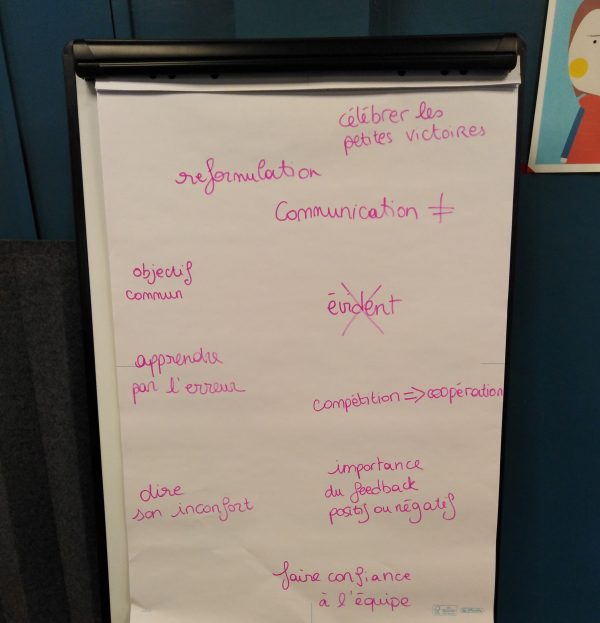 célébrer les
petites victoires
reformulation
Communication ≠
objectif
commun
évident
apprendre
par l'erreur
compétition => coopération
importance
du feedback
positif ou négatif
dire
son inconfort
faire confiance
à l'équipe